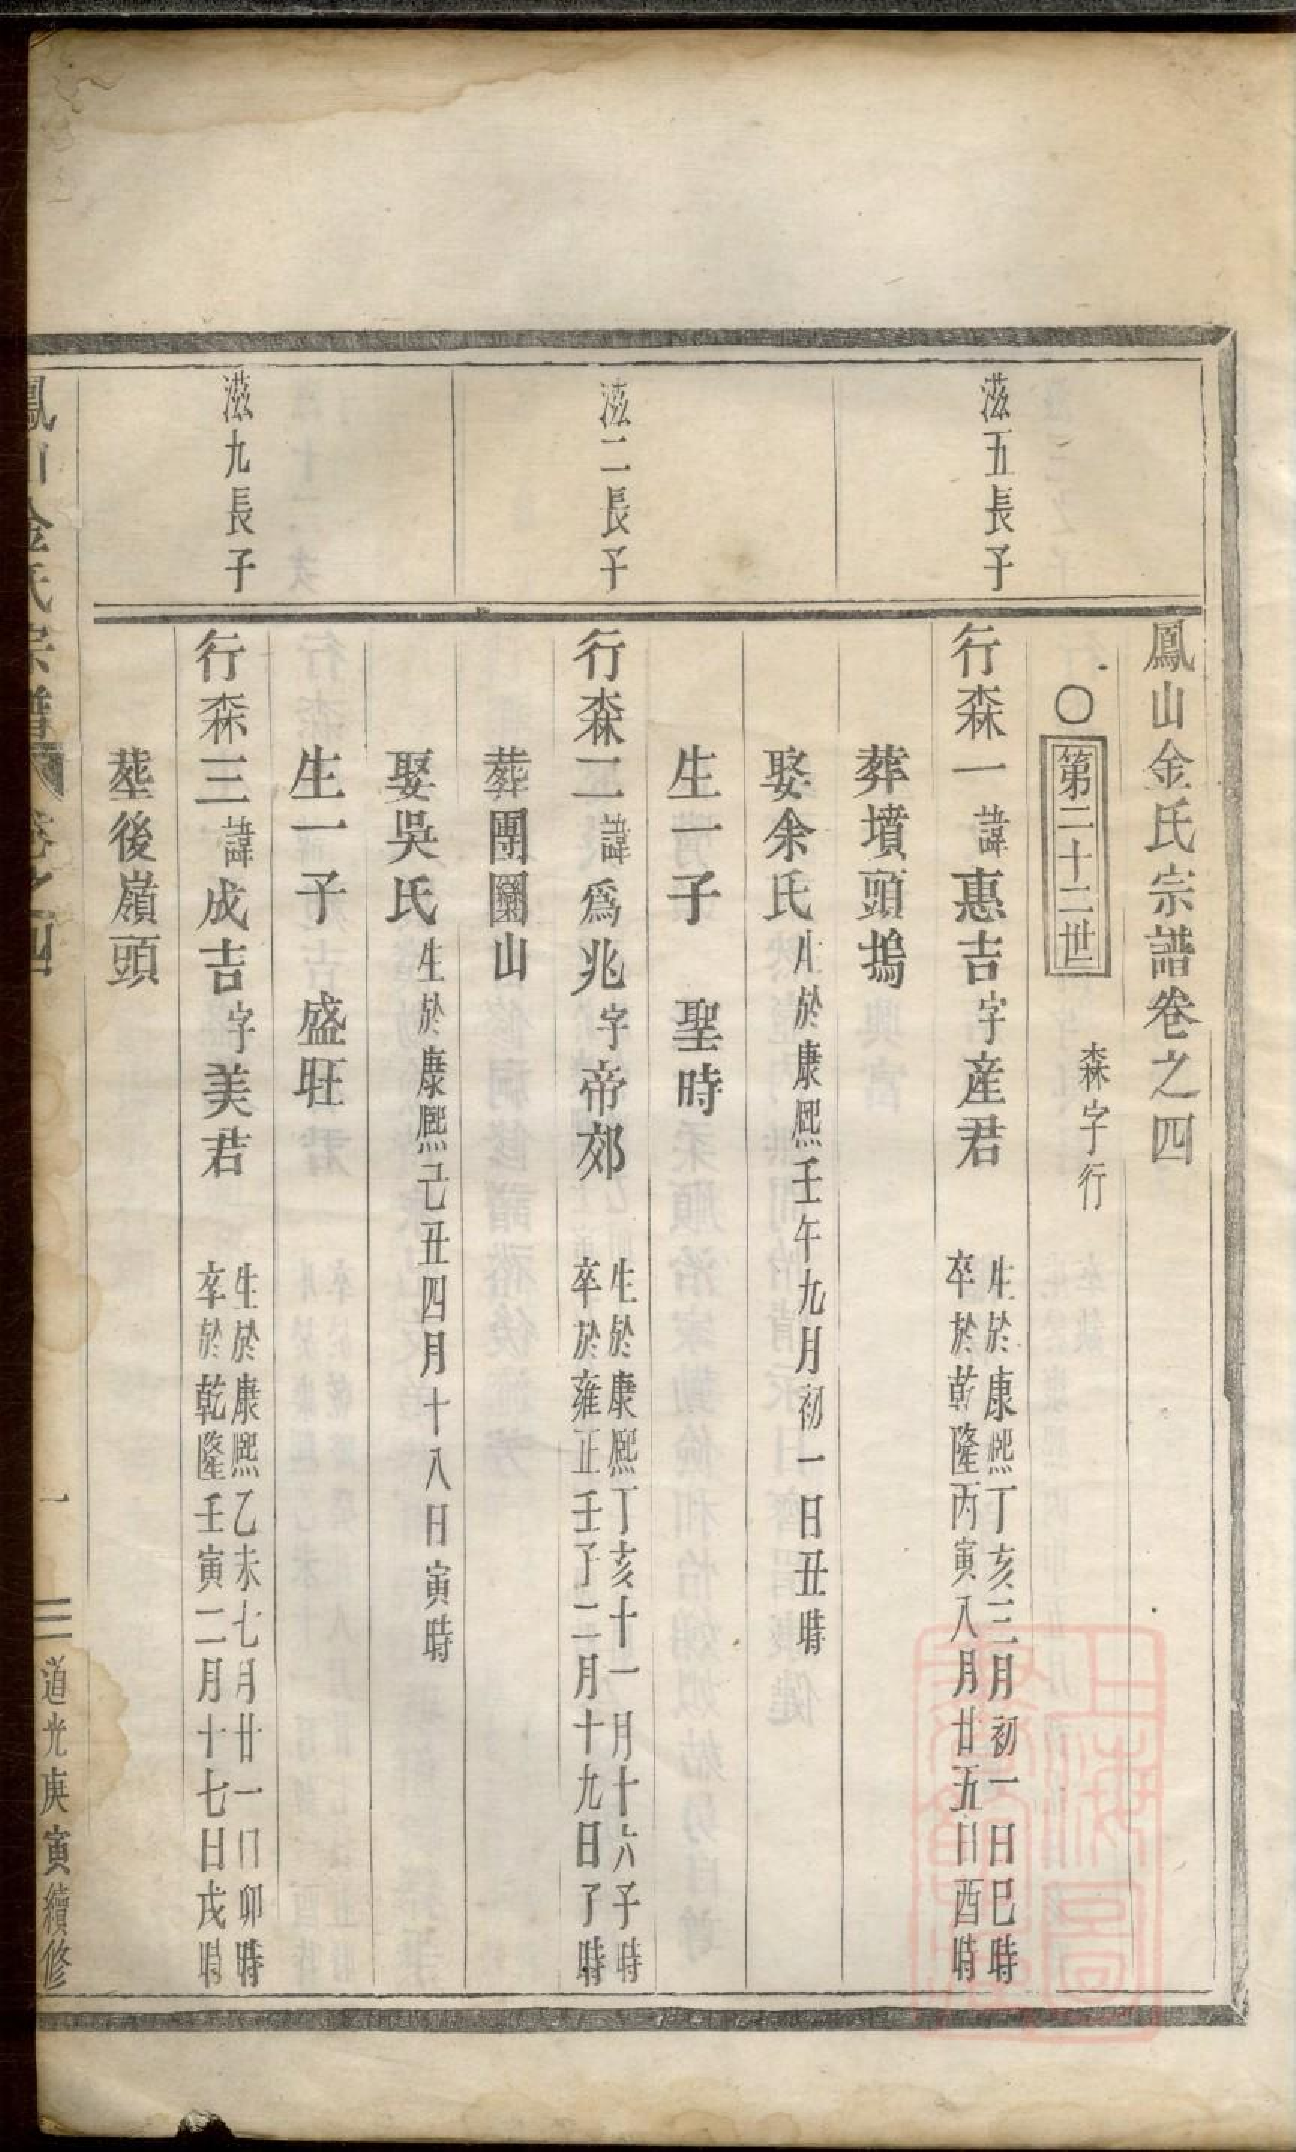 鳳山金氏宗譜卷之四
○第二十二世 森字行
滋五長子
行森一諱惠吉字産君 生於康熙丁亥三月初一日巳時
卒於乾隆丙寅八月廿五日酉時
葬墳頭塢
娶余氏生於康熙壬午九月初一日丑時
生一子 聖時
滋二長子
行森二諱爲兆字帝郊 生於康熙丁亥十一月十六子時
卒於雍正壬子二月十九日子時
葬團圞山
娶吳氏生於康熙己丑四月十八日寅時
生一子 盛旺
滋九長子
行森三諱成吉字美君 生於康熙乙未七月廿一日卯時
卒於乾隆壬寅二月十七日戌時
塟後嶺頭
鳳山金氏宗譜 卷之四 一 道光庚寅續修
上海圖書館藏